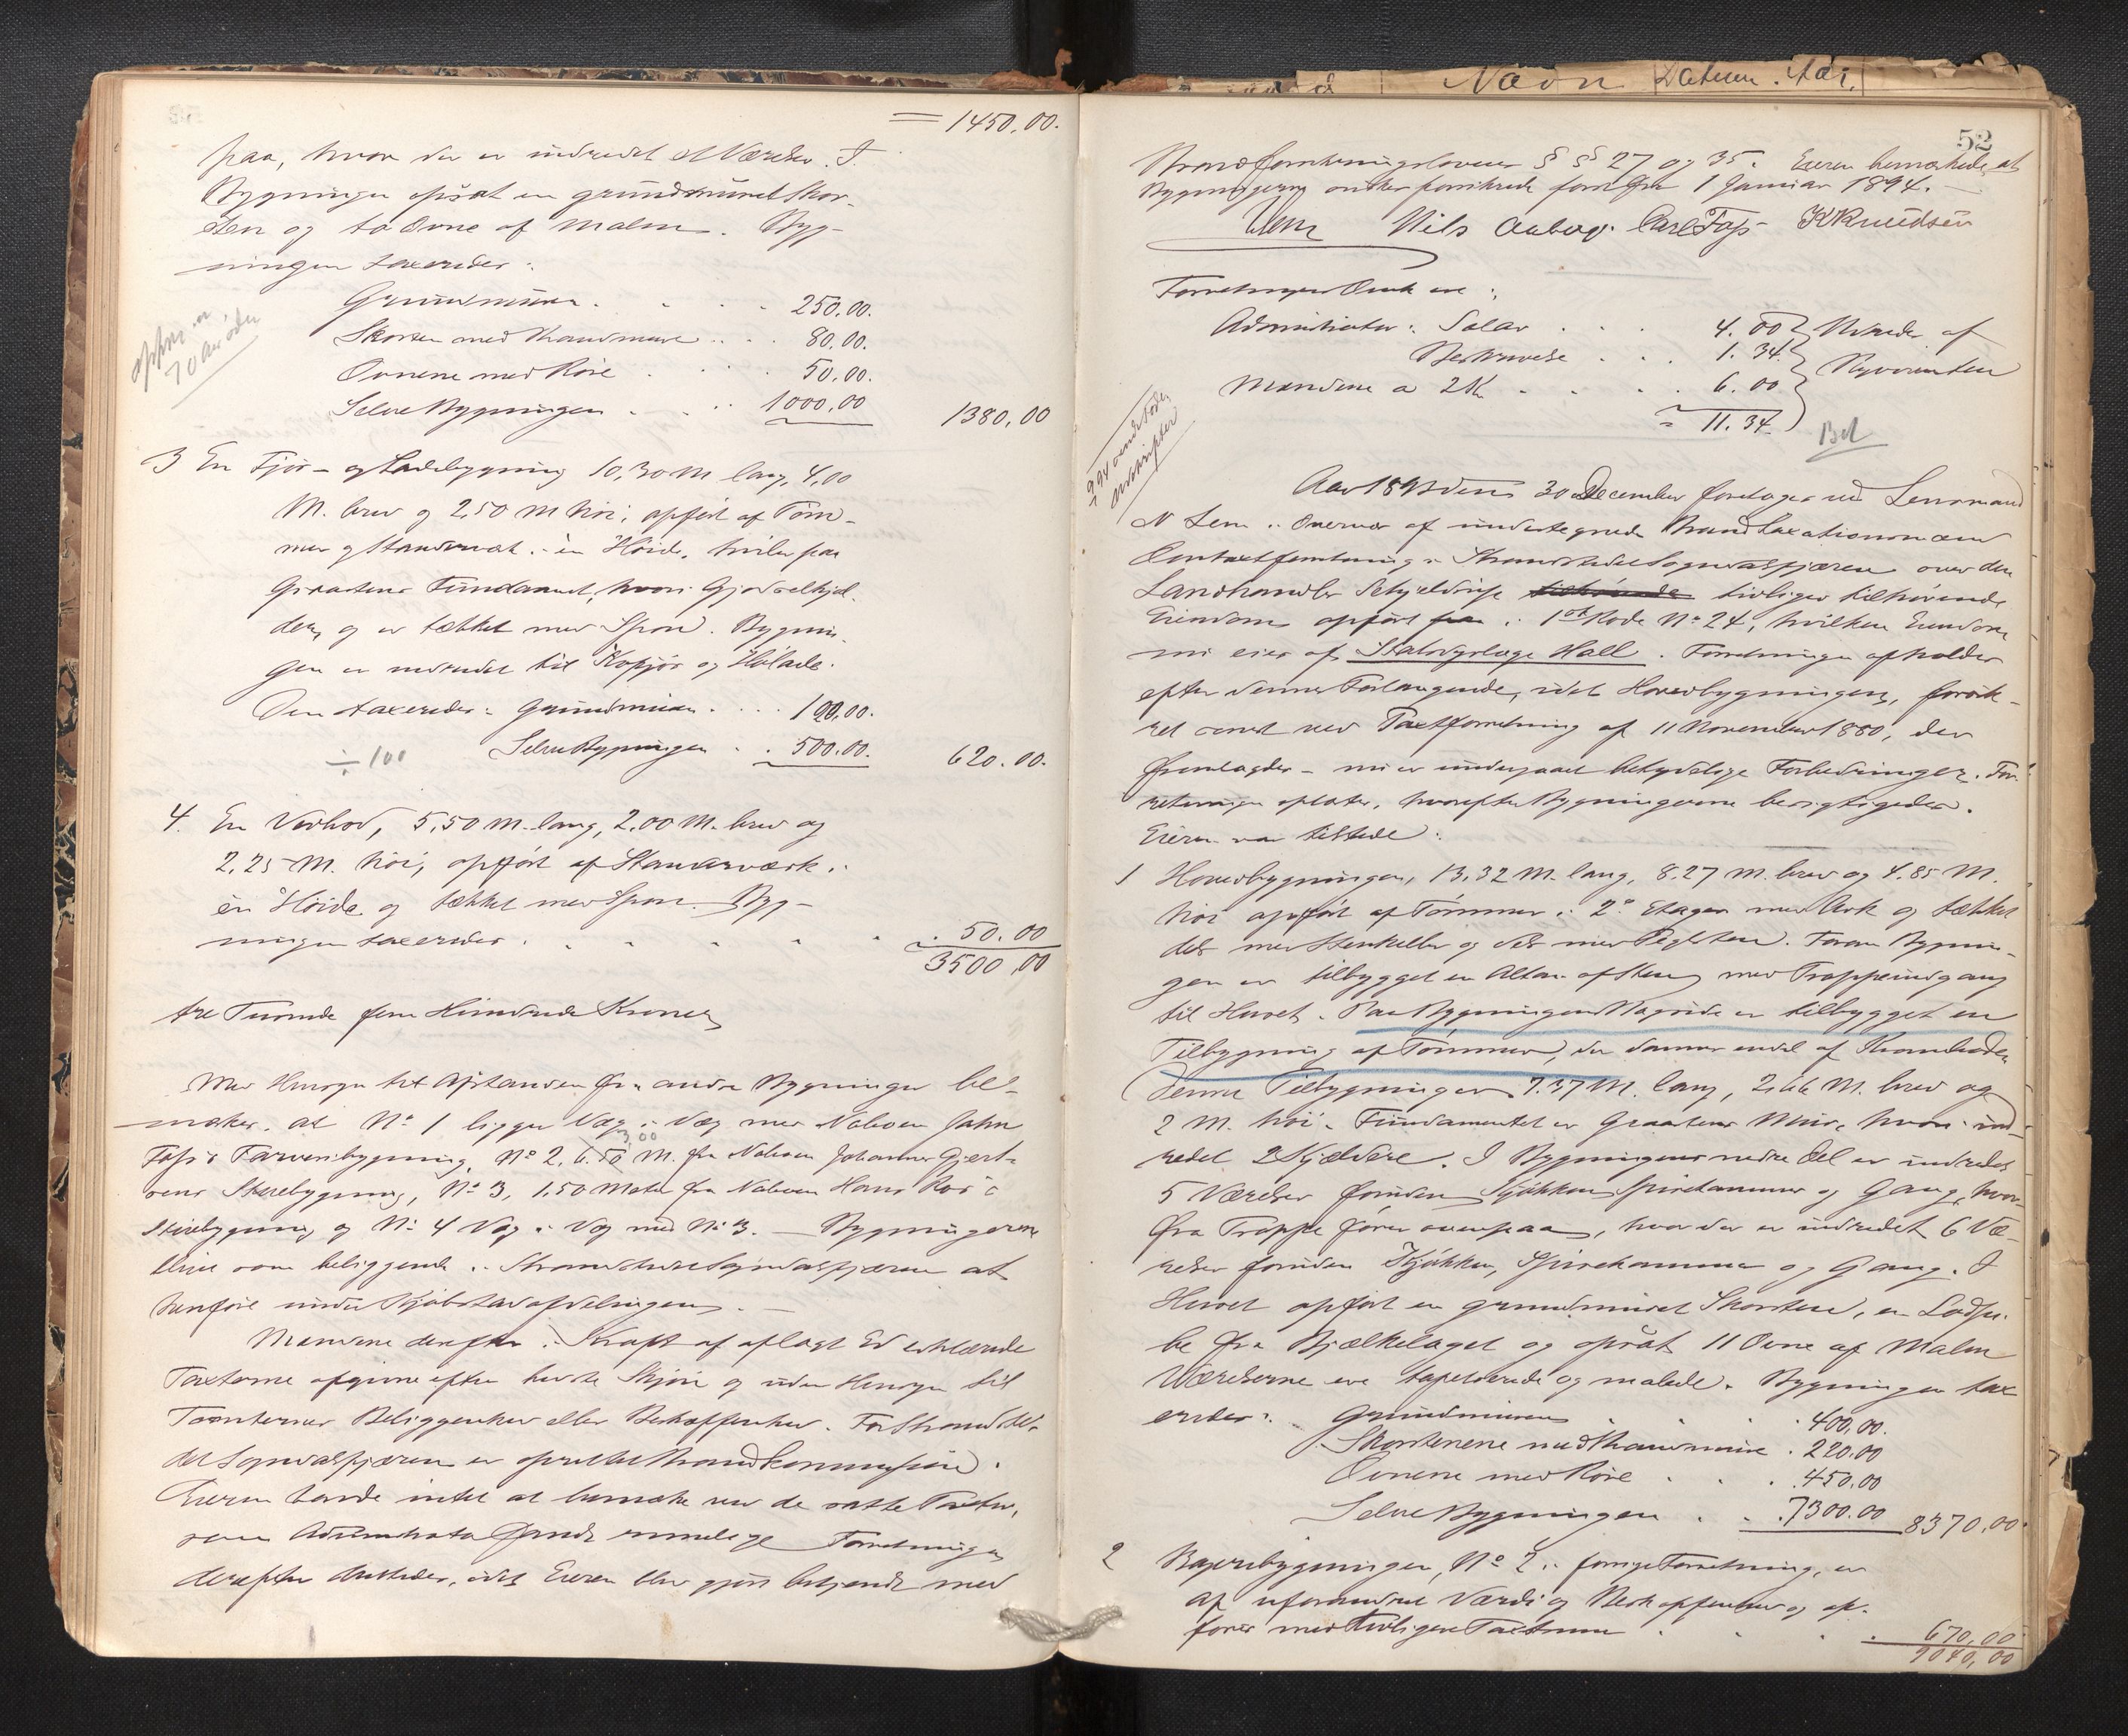 = 1450,00.
paa, hvor der er indredet et Værelse. I
Bygningen opsat en grundmuret Skor-
sten og to Ovne af Malm. Byg-
ningen taxeredes:
Grundmuren . . . 250.00.
Skorsten med Brandmure . . . 80.00.
Ovnene med Röre . . . 50.00.
Selve Bygningen . . . 1000,00 1380,00
3 En Fjös- og Ladebygning 10,30 M lang, 4,00
M. bred og 2,50 M höi, opfört af Töm-
mer og Standværk i en Höide, hviler paa
Graastens Fundament, hvori Gjödselkjæl-
der, og er tækket med Spon. Bygnin-
gen er indredet til Kofjös og Hölade.
Den taxeredes: Grundmuren . . . 120.00.
÷ 100 Selve Bygningen . . 500.00. 620.00.
4. En Vedbod, 5,50 M. lang, 2,00 M. bred og
2,25 M. höi, opfört af Standværk i
én Höide og tækket med Spon. Byg-
ningen taxeredes . . . . . 50.00
3500,00
tre Tusinde fem Hundrede Kroner
Med Hensyn til Afstanden fra andre Bygninger be-
mærkes, at No 1 ligger Væg i Væg med Naboen Jahn
Fass's Farveribygning, No 2, 6.50 3,00 M. fra Naboen Johannes Gjert-
sens Stuebygning, No 3, 1,50 Meter fra Naboen Hans Ros's
Stuebygning og No 4 Væg i Væg med No 3. — Bygningerne
blive som beliggende i Strandstedet Sogndalsfjæren at
henföre under Kjöbstadafdelingen. —
Mændene derefter i Kraft af aflagt Ed erklærede
Taxterne afgivne efter bedste Skjön og uden Hensyn til
Tomternes Beliggenhed eller Beskaffenhed. For Strandste-
det Sogndalsfjæren er oprettet Brandkommission.
Eieren havde intet at bemærke ved de satte Taxter,
som Administrator fandt rimelige. Forretningen
derefter sluttedes, idet Eieren blev gjort bekjendt med
52
Brandforsikringslovens §§ 27 og 35. Eieren bemærkede, at
Bygningerne önskes forsikrede fra 1 Januar 1894. —
Lem Nils Aaberge Carl Fass K Knudsen
Forretningens Omk. ere:
Administrator: Salær . . . 4.00
Beskrivelse . . . 1.34
Mændene a 2 Kr. . . . 6.00
= 11.34
Bet
Aar 1893 den 30 December foretoges ved Lensmand
N Lem i Overvær af undertegnede Brandtaxationsmænd
Omtaxtforretning i Strandstedet Sogndalsfjæren over den
Landhandler tidligere tilhörende
Eiendom opfört i 1ste Rode No 24, hvilken Eiendom
nu eies af Stabssygelæge Hall. Forretningen afholdes
efter dennes Forlangende, idet Hovedbygningen, forsik-
ret senest ved Taxtforretning af 11 November 1880, der
fremlagdes – nu er undergaaet betydelige Forbedringer. For-
retningen oplæstes, hvorefter Bygningerne besigtigedes.
Eieren var tilstede:
1 Hovedbygningen, 13,32 M. lang, 8,27 M. bred og 4.85 M.
höi opfört af Tömmer i 2de Etager med Ark og tækket
dels med Stenheller og dels med Teglsten. Foran Bygnin-
gen er tilbygget en Altan af Sten med Trappeindgang
til Huset. Paa Bygningens Bagside er tilbygget en
Tilbygning af Tömmer, der danner endel af
Denne Tilbygning er 7.37 M. lang, 2,66 M. bred og
2 M. höi. Fundamentet er Graastens Mur, hvori ind-
redet 2 Kjældere. I Bygningens nedre Del er indredet
5 Værelser foruden Kjökken, Spisekammer og Gang, hvor-
fra Trappe förer ovenpaa, hvor der er indredet 6 Væ-
relser foruden Kjökken, Spisekammer og Gang. I
Huset opfört en grundmuret Skorsten, en Lodpi-
be fra Bjælkelaget og opsat 11 Ovne af Malm
Værelserne ere tapetserede og malede. Bygningen tax-
eredes: Grundmuren . . . 400,00.
Skorstenene med Brandmure . 220,00
Ovnene med Röre . . . 450,00
Selve Bygningen . . . 7300.00 8370,00.
2 Bygningen, No 2 i forrige Forretning, er
af uforandret Værdi og Beskaffenhed og op-
föres med tidligere Taxtsum . . . 670,00
9040,00